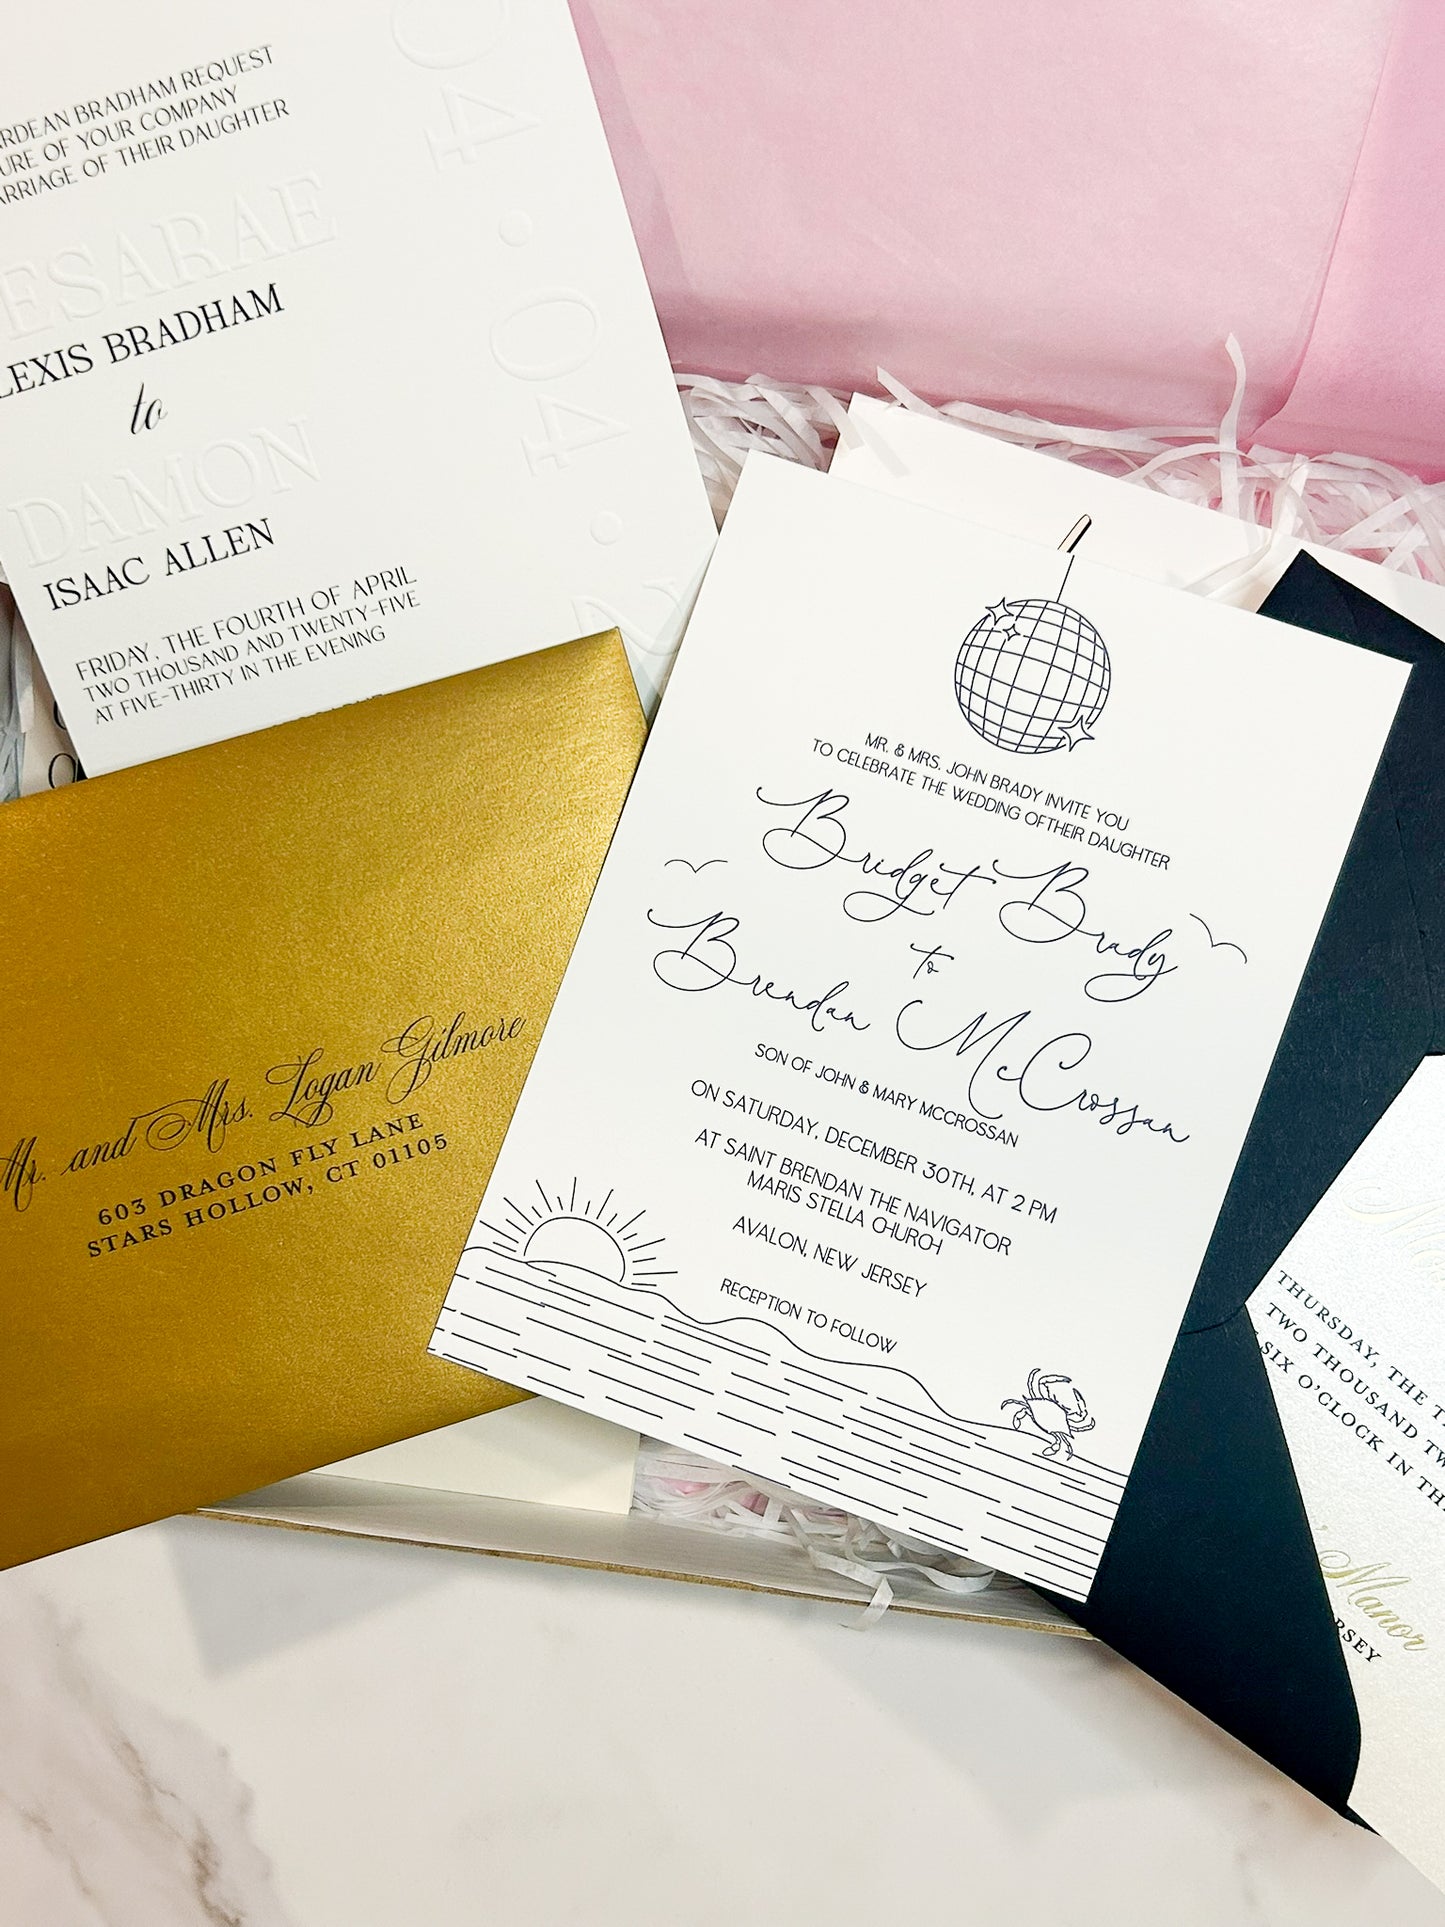 BRADHAM REQUEST
OF YOUR COMPANY
OF THEIR DAUGHTER
ESARAE
LEXIS BRADHAM
to
DAMON
ISAAC ALLEN
FRIDAY, THE FOURTH OF APRIL
TWO THOUSAND AND TWENTY-FIVE
AT FIVE-THIRTY IN THE EVENING
04.04.2
Mr. and Mrs. Logan Gilmore
603 DRAGON FLY LANE
STARS HOLLOW, CT 01105
MR. & MRS. JOHN BRADY INVITE YOU
TO CELEBRATE THE WEDDING OFTHEIR DAUGHTER
Bridget Brady
to
Brendan McCrossan
SON OF JOHN & MARY MCCROSSAN
ON SATURDAY, DECEMBER 30TH, AT 2 PM
AT SAINT BRENDAN THE NAVIGATOR
MARIS STELLA CHURCH
AVALON, NEW JERSEY
RECEPTION TO FOLLOW
THURSDAY, THE T
TWO THOUSAND TW
SIX O'CLOCK IN TH
Manor
RSEY